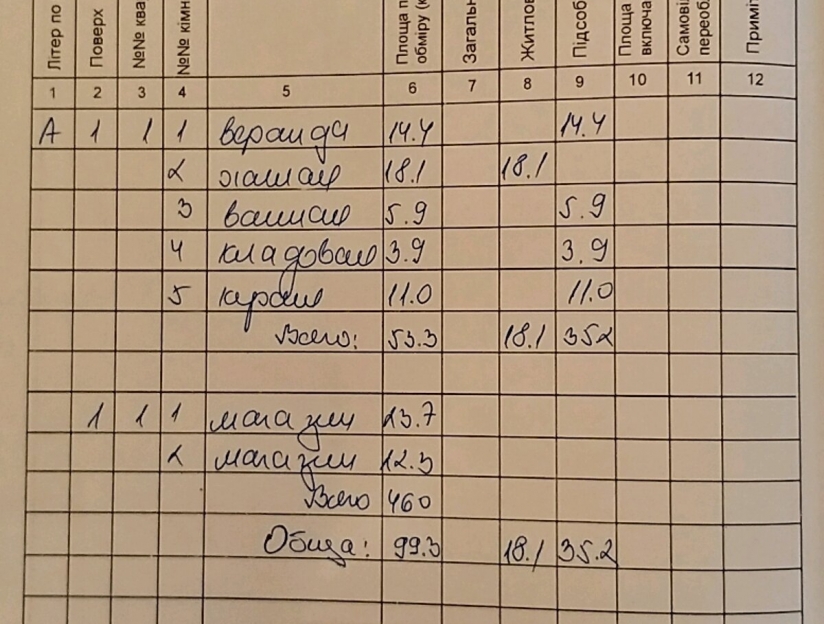 Літер по
Поверх
№№ ква
№№ кімн
Площа п
обміру (к
Загальн
Житлов
Підсоб
Площа
включа
Самові
переобл
Приміт
1 2 3 4 5 6 7 8 9 10 11 12
А 1 1 1 веранда 14.4 14.4
2 жилая 18.1 18.1
3 ванная 5.9 5.9
4 кладовая 3.9 3.9
5 11.0 11.0
Всего: 53.3 18.1 352
1 1 1 магазин 23.7
2 магазин 22.3
Всего 460
Общая: 99.3 18.1 35.2